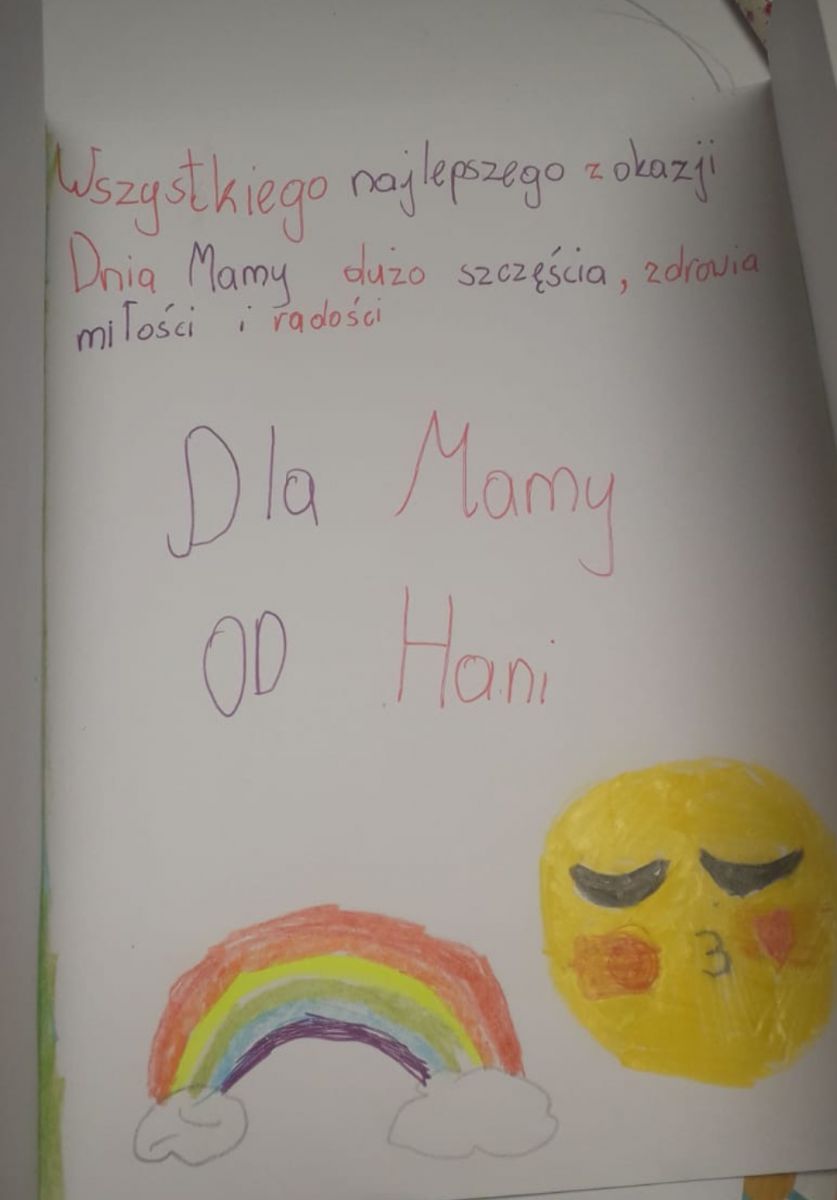 Wszystkiego najlepszego z okazji
Dnia Mamy dużo szczęścia, zdrowia
miłości i radości
Dla Mamy
OD Hani